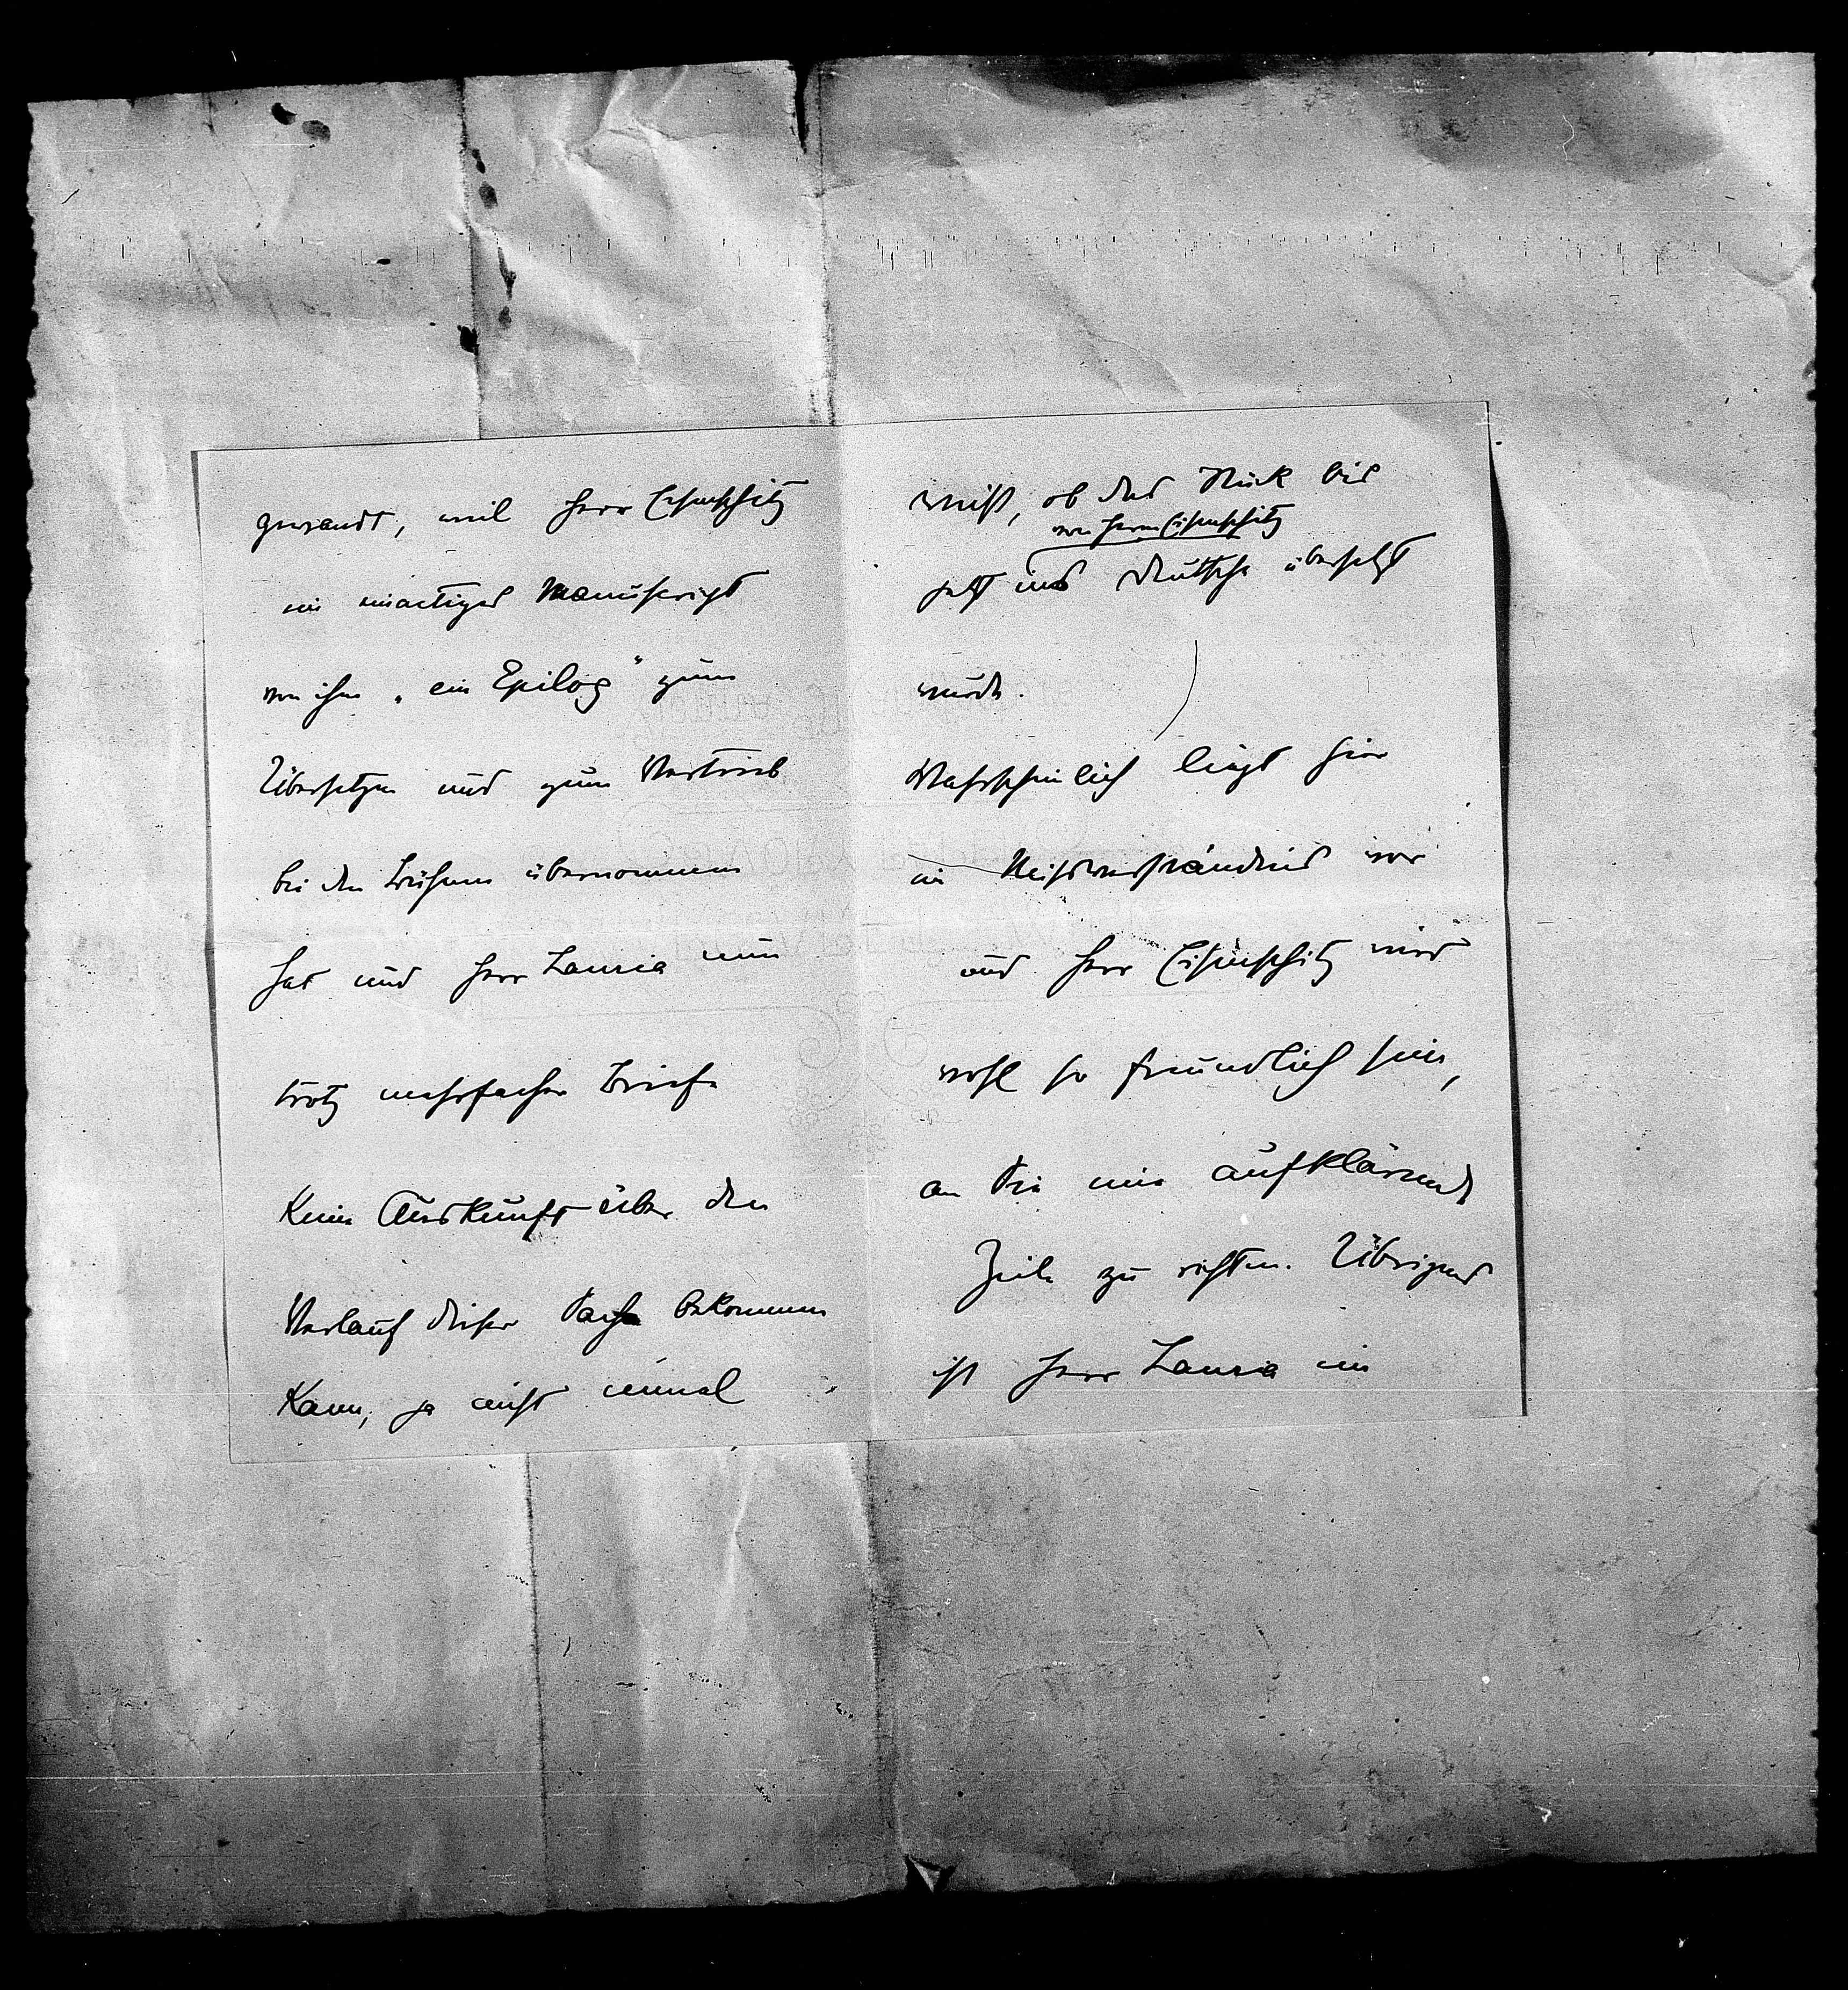 gewandt, weil Herr Eisenschitz
ein einactiges Manuscript
von ihm „ein Epilog" zum
Übersetzen und zum Vertrieb
bei den Bühnen übernommen
hat und Herr Lauria nun
trotz mehrfacher Briefe
keine Auskunft über den
Verlauf dieser Sache bekommen
kann, ja nicht einmal
weiß, ob das Stück bis
von Herrn Eisenschitz
jetzt ins Deutsche übersetzt
wurde.
Wahrscheinlich liegt hier
ein Missverständnis vor
und Herr Eisenschitz wird
wohl so freundlich sein,
an Sie eine aufklärende
Zeile zu richten. Übrigens
ist Herr Lauria ein